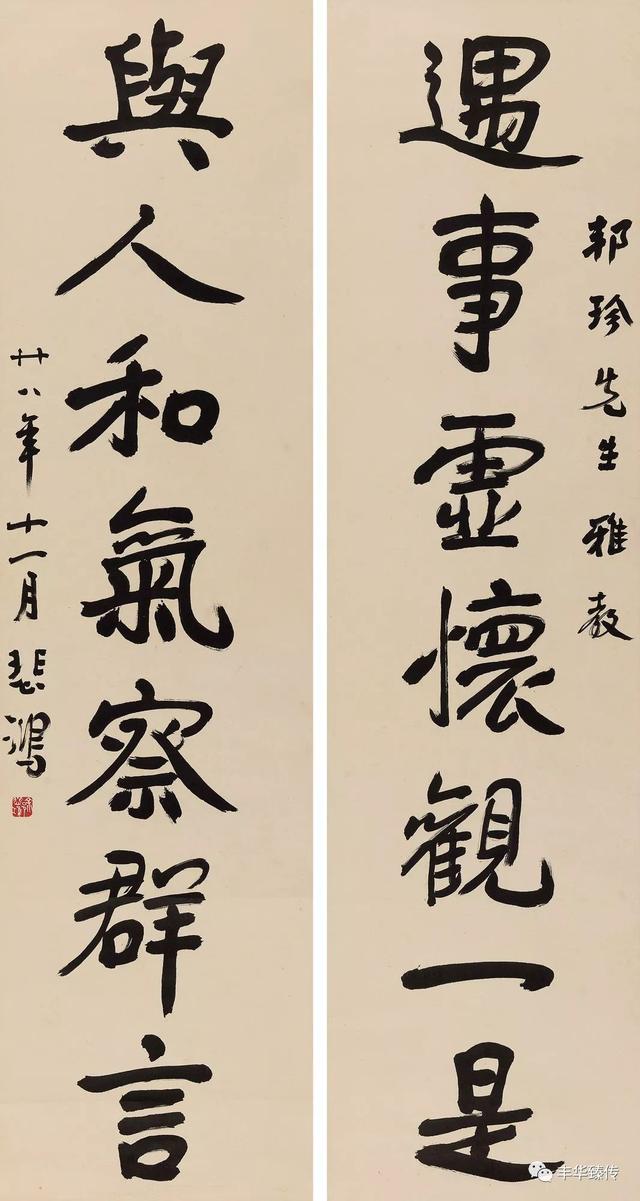 邦珍先生雅教
遇事虛懷觀一是
與人和氣察群言
廿八年十一月悲鴻
丰华臻传